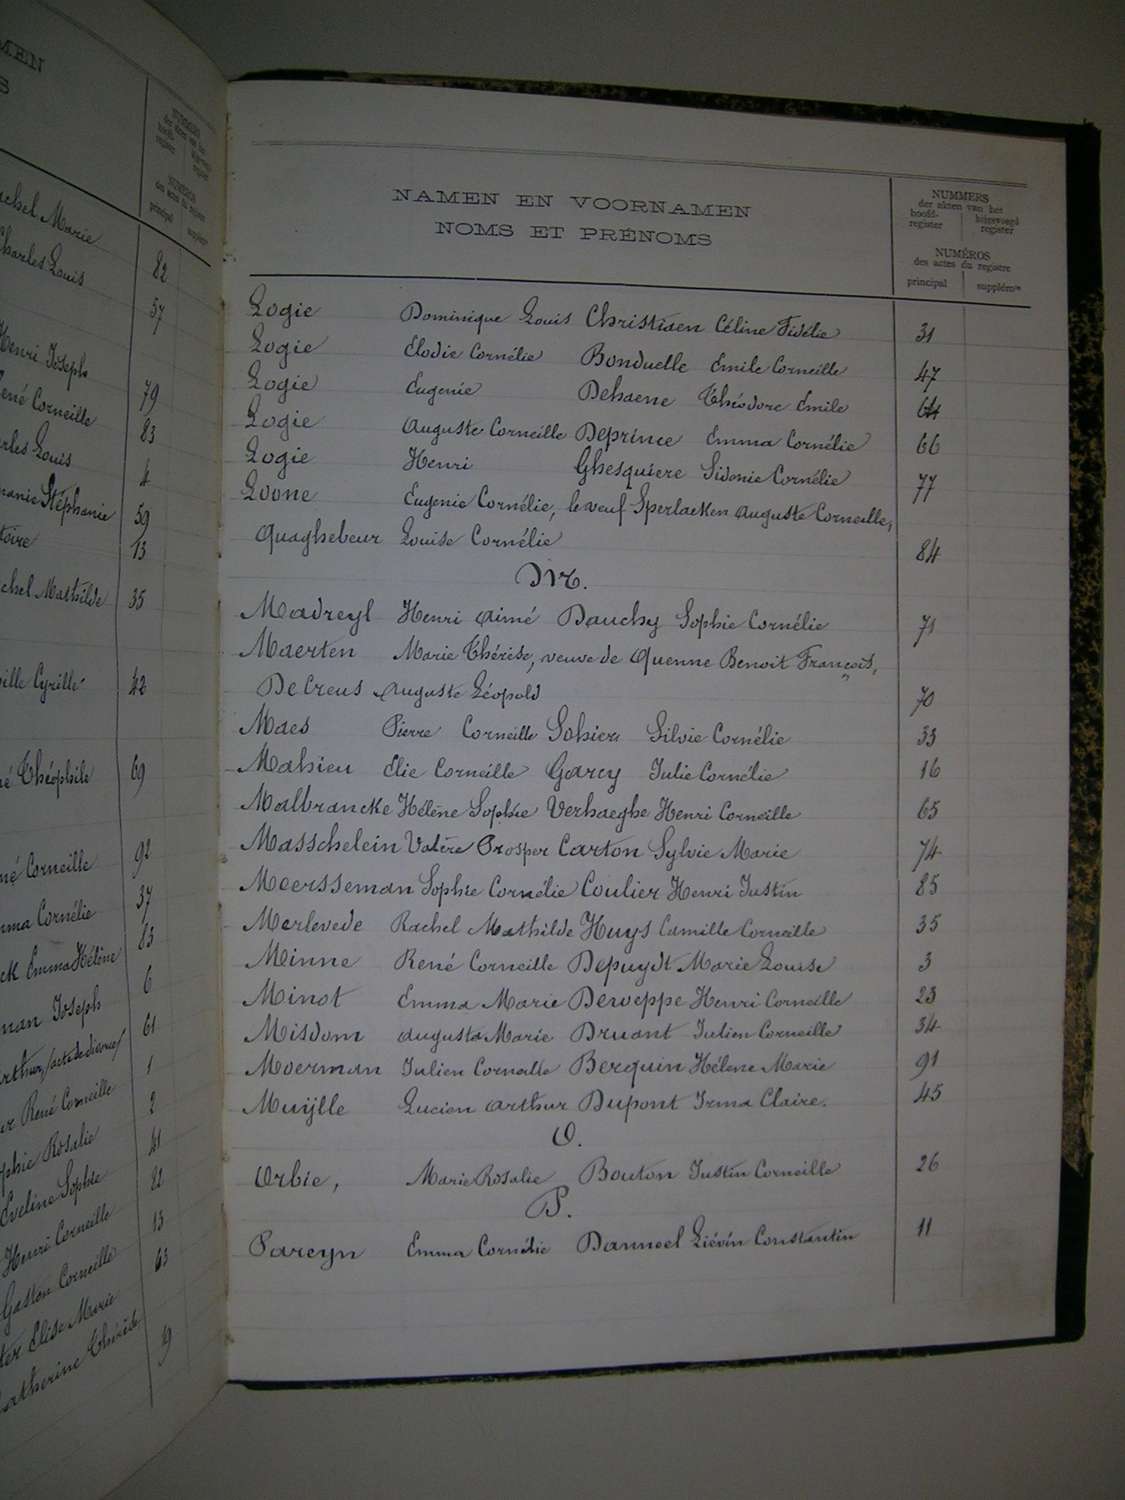 MEN
S
NUMMERS
NUMÉROS
des actes du registre
principal
Marie 82
Charles Louis 57
Henri Joseph
René Corneille 79
Louis 83
4
Stéphanie 59
13
Mathilde 35
Cyrille 42
Théophile 69
92
Corneille 37
Emma Cornélie 83
Emma Hélène 6
Joseph 61
1
René Corneille 2
Sophie Rosalie 41
Eveline Sophie 82
Henri Corneille 13
Gaston Corneille 63
Elise Marie
Catherine 19
NAMEN EN VOORNAMEN
NOMS ET PRÉNOMS
NUMMERS
der akten van het
hoofd- bijgevoegd
register register
NUMÉROS
des actes du registre
principal supplémre
Logie Dominique Louis Christiaen Céline Fidélie 31
Logie Elodie Cornélie Bonduelle Emile Corneille 47
Logie Eugenie Dehaene Théodore Emile 64
Logie Auguste Corneille Deprince Emma Cornélie 66
Logie Henri Ghesquiere Sidonie Cornélie 77
Loone Eugenie Cornélie, le veuf Sperlaeken Auguste Corneille,
Quaghebeur Louise Cornélie 84
M.
Madreyl Henri Aimé Dauchy Sophie Cornélie 71
Maerten Marie Thérèse, veuve de Quenne Benoit François,
DeCreus Auguste Léopold 70
Maes Pierre Corneille Sohier Silvie Cornélie 33
Mahieu Elie Corneille Garcy Julie Cornélie 16
Malbrancke Hélène Sophie Verhaeghe Henri Corneille 65
Masschelein Valère Prosper Carton Sylvie Marie 74
Meersseman Sophie Cornélie Coulier Henri Justin 85
Merlevede Rachel Mathilde Huys Camille Corneille 35
Minne René Corneille Depuydt Marie Louise 3
Minot Emma Marie Deweppe Henri Corneille 23
Misdom Augusta Marie Druant Julien Corneille 34
Moerman Julien Corneille Berquin Hélene Marie 91
Muÿlle Lucien Arthur Dupont Irma Claire. 45
O.
Orbie, Marie Rosalie Bouton Justin Corneille 26
P.
Pareyn Emma Cornélie Danneel Liévin Constantin 11